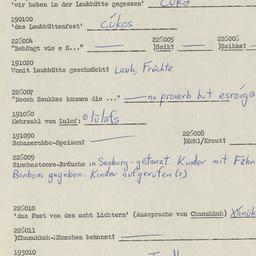 'wir haben in der Laubhütte gegessen' Cuka
190100
'das Laubhüttenfest' cúkos
226004 226005 226006
"Behängt wie e S..." )Saik? )Saikke?
191020
Womit Laubhütte geschmückt? Laub, Früchte
226007
"Hooch Saukkes kumen die ..." — no proverb but esroiga
191060
Mehrzahl von Lulef: lúlafs
191090 226008
Schanerabbe-Speisen? )Kohl/Kraut?
226009
Simchastoore-Bräuche in Seeburg - getanzt. Kinder mit Fähn
Bonbons gegeben. Kinder aufgerufen (?)
226010
'das Fest von den acht Lichtern' (Aussprache von Chanukkah) Xanúk
226011
)Chanukkah-Männchen bekannt?
193010